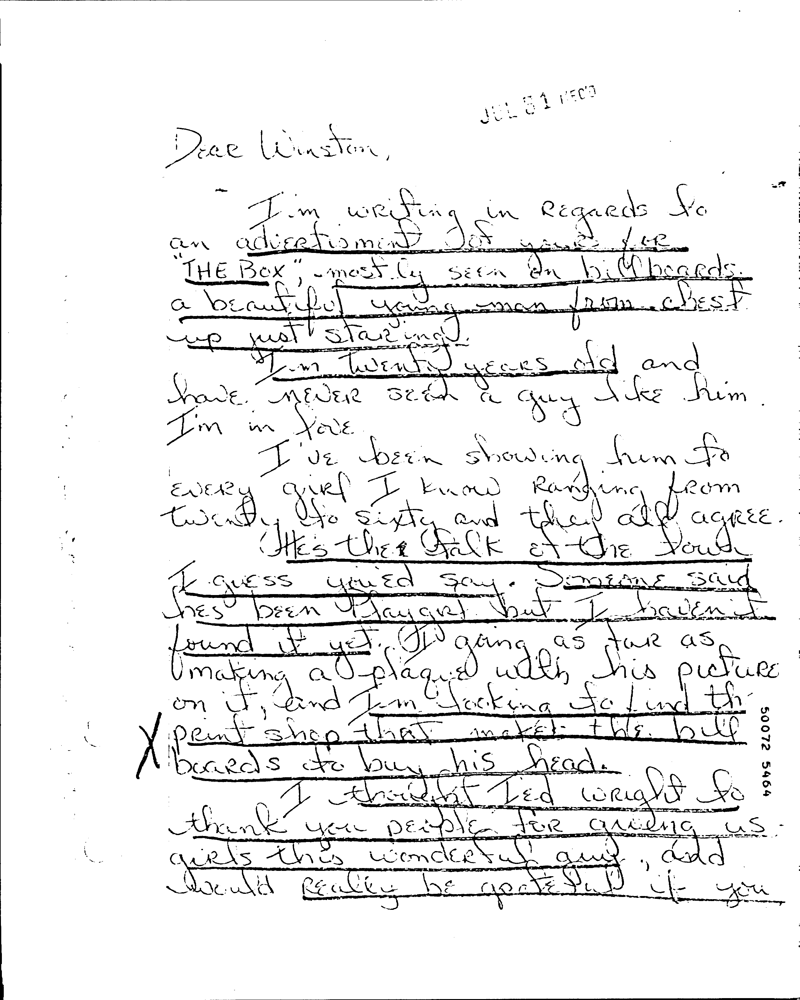 JUL 31 REC'D
Dear Winston,
I'm writing in regards to
an advertisment of yours for
"THE BOX", mostly seen on billboards.
a beautiful young man from chest
up just staring.
I'm twenty years old and
have never seen a guy like him.
I'm in love.
I've been showing him to
every girl I know ranging from
twenty to sixty and they all agree.
Hes the talk of the town
I guess you'ed say. Someone said
hes been Playgirl but I haven't
found it yet. I going as far as
making a plaque with his picture
on it, and I'm looking to find th
print shop that makes the bill
boards to buy his head.
I thought I'ed wright to
thank you people for giving us
girls this wonderful guy, and
would really be grateful if you
50072 5464